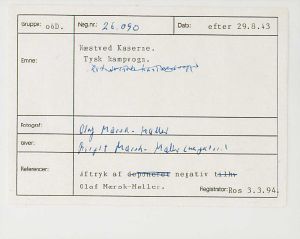 Gruppe: o6D. Neg.nr: 26.090 Dato: efter 29.8.43
Emne: Næstved Kaserne.
Tysk kampvogn.
Fotograf: Olaf Mærsk-Møller
Giver: Birgit Mærsk-Møller
Referencer: Aftryk af deponeret negativ film.
Olaf Mærsk-Møller. Registrator: Ros 3.3.94.